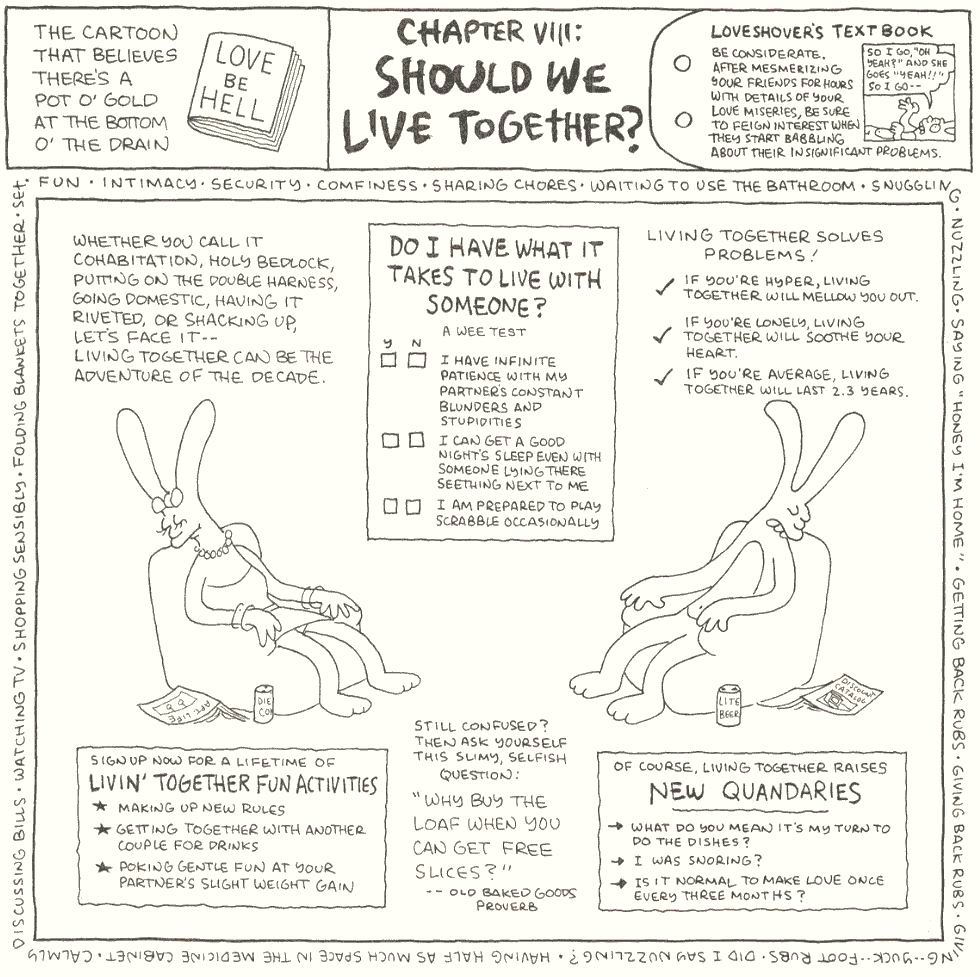 THE CARTOON
THAT BELIEVES
THERE'S A
POT O' GOLD
AT THE BOTTOM
O' THE DRAIN
LOVE
BE
HELL
CHAPTER VIII:
SHOULD WE
LIVE TOGETHER?
LOVESHOVER'S TEXTBOOK
BE CONSIDERATE.
AFTER MESMERIZING
YOUR FRIENDS FOR HOURS
WITH DETAILS OF YOUR
LOVE MISERIES, BE SURE
TO FEIGN INTEREST WHEN
THEY START BABBLING
ABOUT THEIR INSIGNIFICANT PROBLEMS.
SO I GO, "OH
YEAH?" AND SHE
GOES "YEAH!!"
SO I GO--
FUN · INTIMACY · SECURITY · COMFINESS · SHARING CHORES · WAITING TO USE THE BATHROOM · SNUGGLING ·
NUZZLING · SAYING "HONEY I'M HOME" · GETTING BACK RUBS · GIVING BACK RUBS · GIVING--YUCK--FOOT RUBS · DID I SAY NUZZLING? · HAVING HALF AS MUCH SPACE IN THE MEDICINE CABINET · CALMLY
DISCUSSING BILLS · WATCHING TV · SHOPPING SENSIBLY · FOLDING BLANKETS TOGETHER · SEX ·
WHETHER YOU CALL IT
COHABITATION, HOLY BEDLOCK,
PUTTING ON THE DOUBLE HARNESS,
GOING DOMESTIC, HAVING IT
RIVETED, OR SHACKING UP,
LET'S FACE IT--
LIVING TOGETHER CAN BE THE
ADVENTURE OF THE DECADE.
DO I HAVE WHAT IT
TAKES TO LIVE WITH
SOMEONE?
A WEE TEST
Y N
I HAVE INFINITE
PATIENCE WITH MY
PARTNER'S CONSTANT
BLUNDERS AND
STUPIDITIES
I CAN GET A GOOD
NIGHT'S SLEEP EVEN WITH
SOMEONE LYING THERE
SEETHING NEXT TO ME
I AM PREPARED TO PLAY
SCRABBLE OCCASIONALLY
LIVING TOGETHER SOLVES
PROBLEMS!
IF YOU'RE HYPER, LIVING
TOGETHER WILL MELLOW YOU OUT.
IF YOU'RE LONELY, LIVING
TOGETHER WILL SOOTHE YOUR
HEART.
IF YOU'RE AVERAGE, LIVING
TOGETHER WILL LAST 2.3 YEARS.
APT LIFE
DIE
CO
LITE
BEER
DISCOUNT
CATALOG
SIGN UP NOW FOR A LIFETIME OF
LIVIN' TOGETHER FUN ACTIVITIES
★ MAKING UP NEW RULES
★ GETTING TOGETHER WITH ANOTHER
COUPLE FOR DRINKS
★ POKING GENTLE FUN AT YOUR
PARTNER'S SLIGHT WEIGHT GAIN
STILL CONFUSED?
THEN ASK YOURSELF
THIS SLIMY, SELFISH
QUESTION:
"WHY BUY THE
LOAF WHEN YOU
CAN GET FREE
SLICES?"
-- OLD BAKED GOODS
PROVERB
OF COURSE, LIVING TOGETHER RAISES
NEW QUANDARIES
→ WHAT DO YOU MEAN IT'S MY TURN TO
DO THE DISHES?
→ I WAS SNORING?
→ IS IT NORMAL TO MAKE LOVE ONCE
EVERY THREE MONTHS?